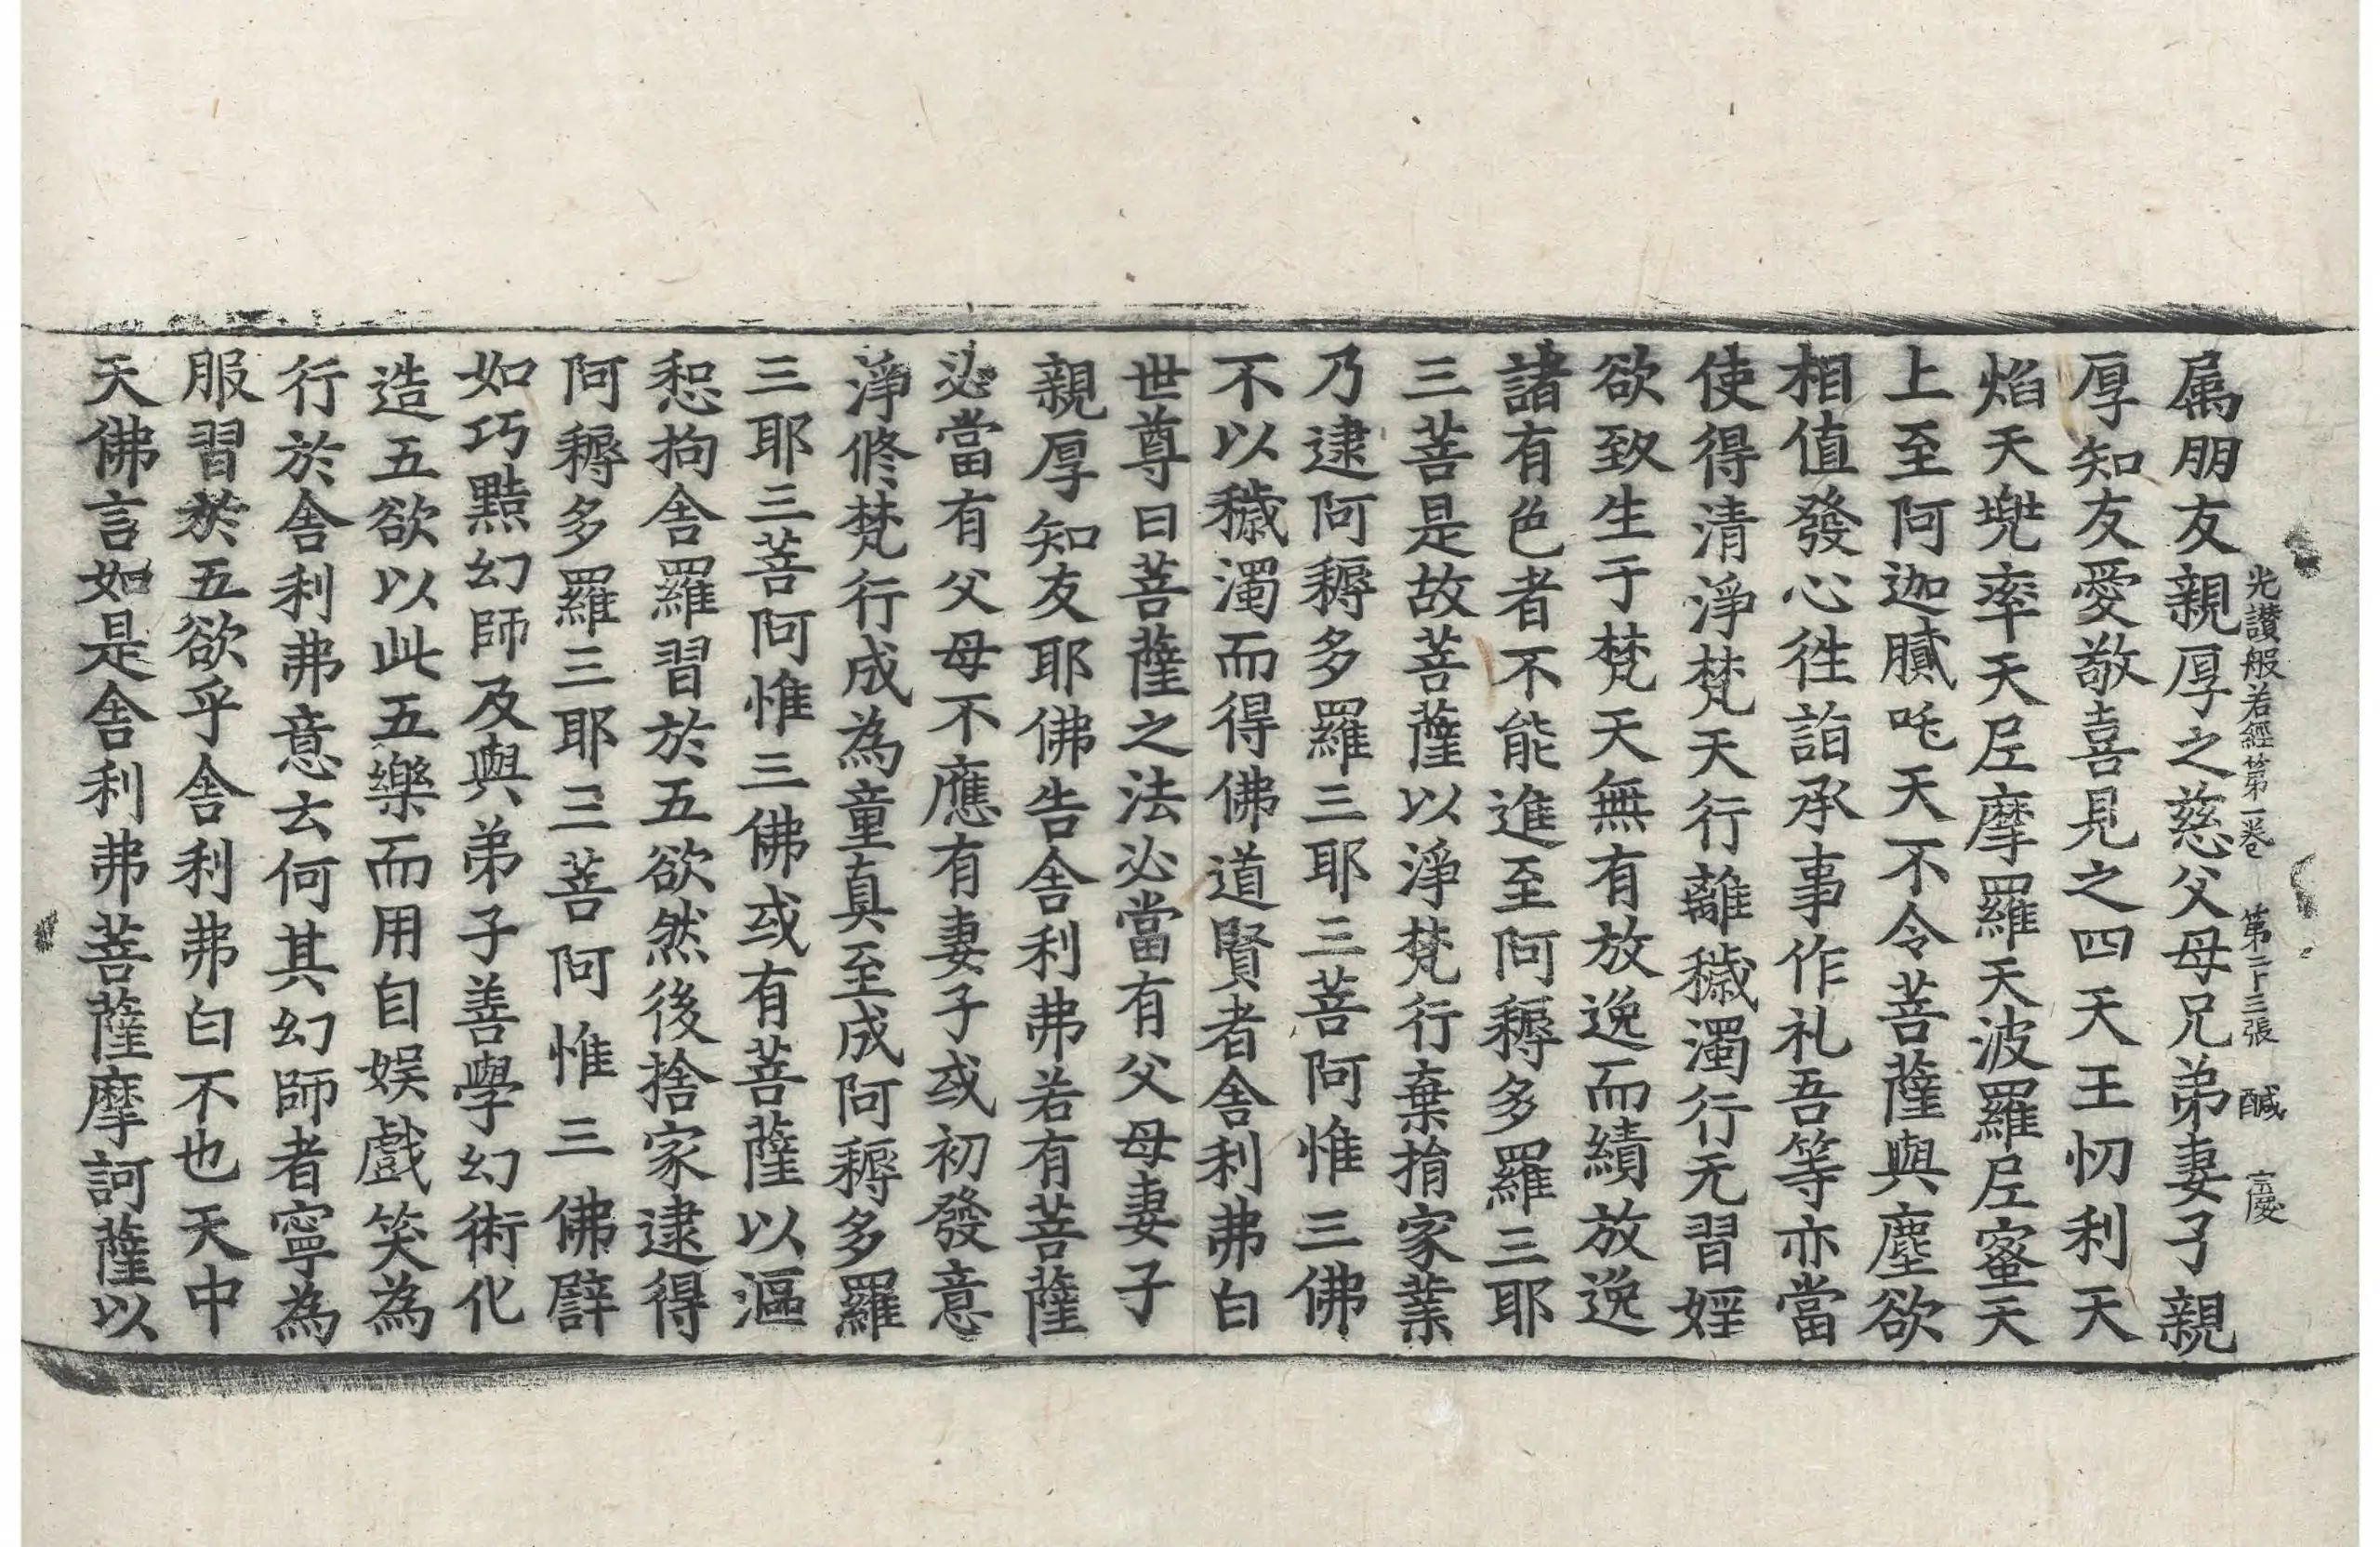 光讃般若經第一卷　第二十三張　醎　言慶
属朋友親厚之慈父母兄弟妻子親
厚知友愛敬喜見之四天王忉利天
焰天兠率天𡰱摩羅天波羅𡰱蜜天
上至阿迦膩吒天不令菩薩與塵欲
相值發心徃詣承事作礼吾等亦當
使得清淨梵天行離穢濁行无習婬
欲致生于梵天無有放逸而績放逸
諸有色者不能進至阿耨多羅三耶
三菩是故菩薩以淨梵行棄捐家業
乃逮阿耨多羅三耶三菩阿惟三佛
不以穢濁而得佛道賢者舍利弗白
世尊曰菩薩之法必當有父母妻子
親厚知友耶佛告舍利弗若有菩薩
必當有父母不應有妻子或初發意
淨修梵行成為童真至成阿耨多羅
三耶三菩阿惟三佛或有菩薩以漚
惒拘舍羅習於五欲然後捨家逮得
阿耨多羅三耶三菩阿惟三佛譬
如巧黠幻師及與弟子善學幻術化
造五欲以此五樂而用自娱戲笑為
行於舍利弗意云何其幻師者寧為
服習於五欲乎舍利弗白不也天中
天佛言如是舍利弗菩薩摩訶薩以